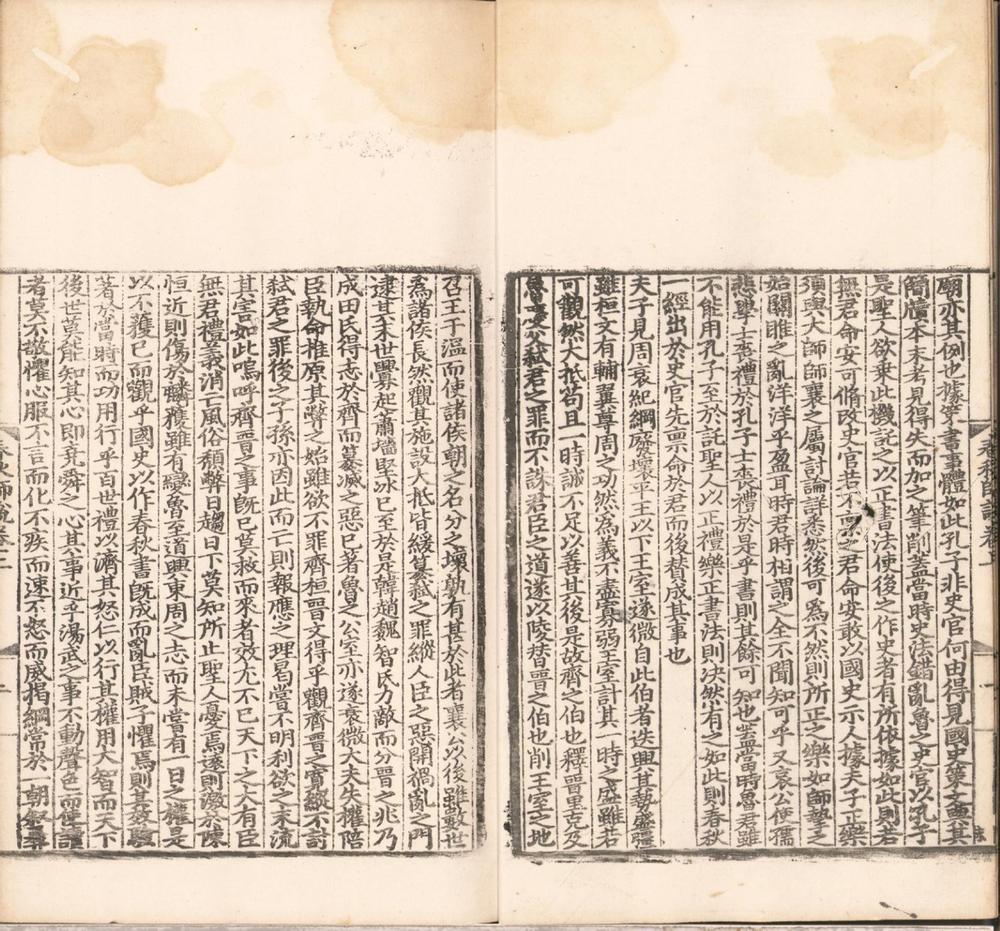 廟亦其例也據策書事體如此孔子非史官何由得見國史策文與其
簡牘本末考見得失而加之筆削蓋當時史法錯亂魯之史官以孔子
是聖人欲乗此機託之以正書法使後之作史者有所依據如此則若
無君命安可脩改史官若不禀之君命安敢以國史示人據夫子正樂
須與大師師襄之屬討論詳悉然後可為不然則所正之樂如師摯之
始關雎之亂洋洋乎盈耳時君時相謂之全不聞知可乎又哀公使孺
悲學士喪禮於孔子士喪禮於是乎書則其餘可知也蓋當時魯君雖
不能用孔子至於託聖人以正禮樂正書法則決然有之如此則春秋
一經出於史官先禀命於君而後賛成其事也
天子見周衰紀綱廢壞平王以下王室遂微自此伯者迭興其執盛彊
雖桓文有輔翼尊周之功然為義不盡寡弱王室計其一時之盛雖若
可觀然大抵苟且一時誠不足以善其後是故齊之伯也釋晉里克及
魯慶父弑君之罪而不誅君臣之道遂以陵替晉之伯也削王室之地
召王于温而使諸侯朝之名分之壞孰有甚於此者襄公以後雖數世
為諸侯長然觀其施設大抵皆緩簒弑之罪縱人臣之惡開禍亂之門
逮其末世釁起蕭墻堅冰已至於是韓趙魏智氏力敵而分晉之兆乃
成田氏得志於齊而簒滅之惡已著魯之公室亦遂衰微大夫失權陪
臣執命推原其弊之始雖欲不罪齊桓晉文得乎觀齊晉之實縱不討
弑君之罪後之子孫亦因此而亡則報應之理曷嘗不明利欲之末流
其害如此嗚呼齊晉之事既已莫救而來者效尤不已天下之大有臣
無君禮義消亡風俗頹弊日趨日下莫知所止聖人憂焉遠則激於陳
恒近則傷於麟獲雖有變魯至道興東周之志而未嘗有一日之權是
以不獲已而觀乎國史以作春秋書既成而亂臣賊子懼焉則其效驗
著於當時而功用行乎百世禮以濟其怒仁以行其權用大智而天下
後世莫能知其心即堯舜之心其事近乎湯武之事不動聲色而使讀
者莫不敬懼心服不言而化不疾而速不怒而威掲綱常於一朝叙